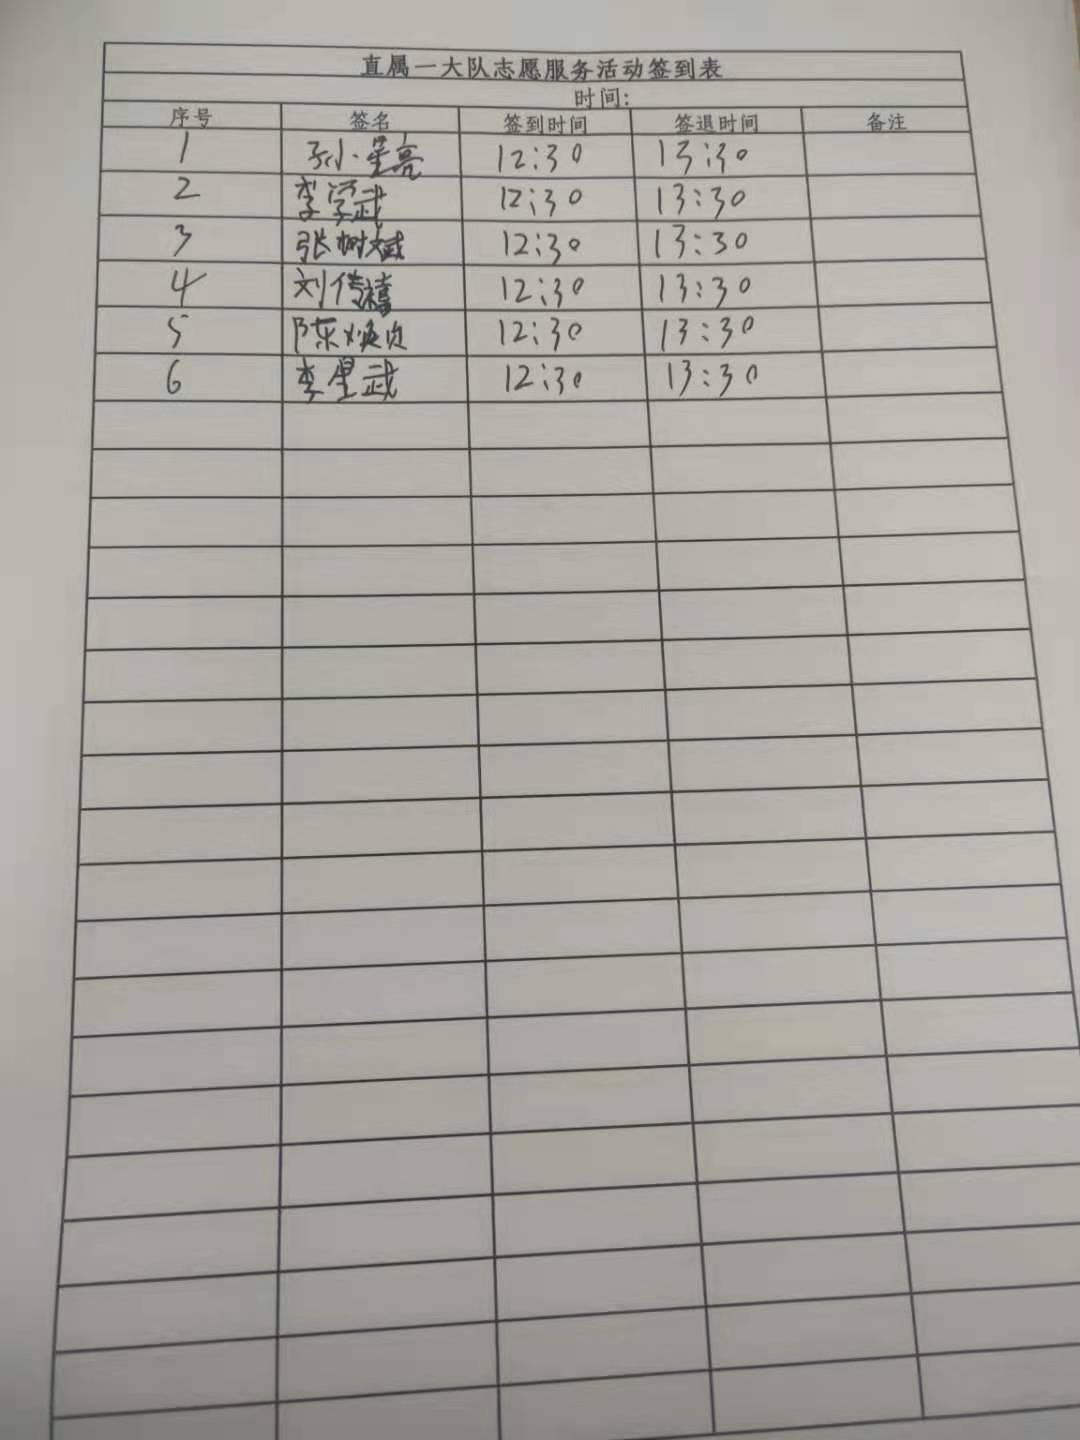 直属一大队志愿服务活动签到表
时间:
序号 签名 签到时间 签退时间 备注
1 孙小星亮 12:30 13:30
2 李学武 12:30 13:30
3 张树斌 12:30 13:30
4 刘传禧 12:30 13:30
5 陈焕贞 12:30 13:30
6 李星武 12:30 13:30